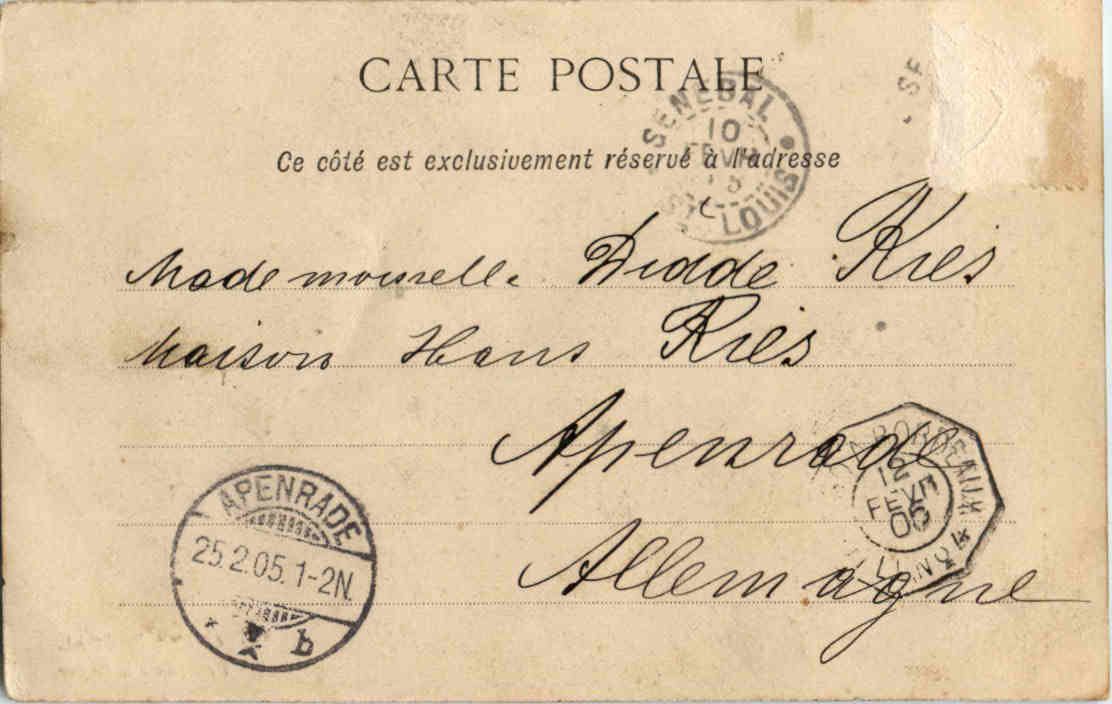 CARTE POSTALE
Ce côté est exclusivement réservé à l'adresse
SENEGAL
10
FEVR
ST LOUIS
Mademoiselle Didde Kies
Maison Hans Kies
Apenrade
Allemagne
BORDEAUX
12
FEVR
05
APENRADE
25.2.05.1-2N.
* b